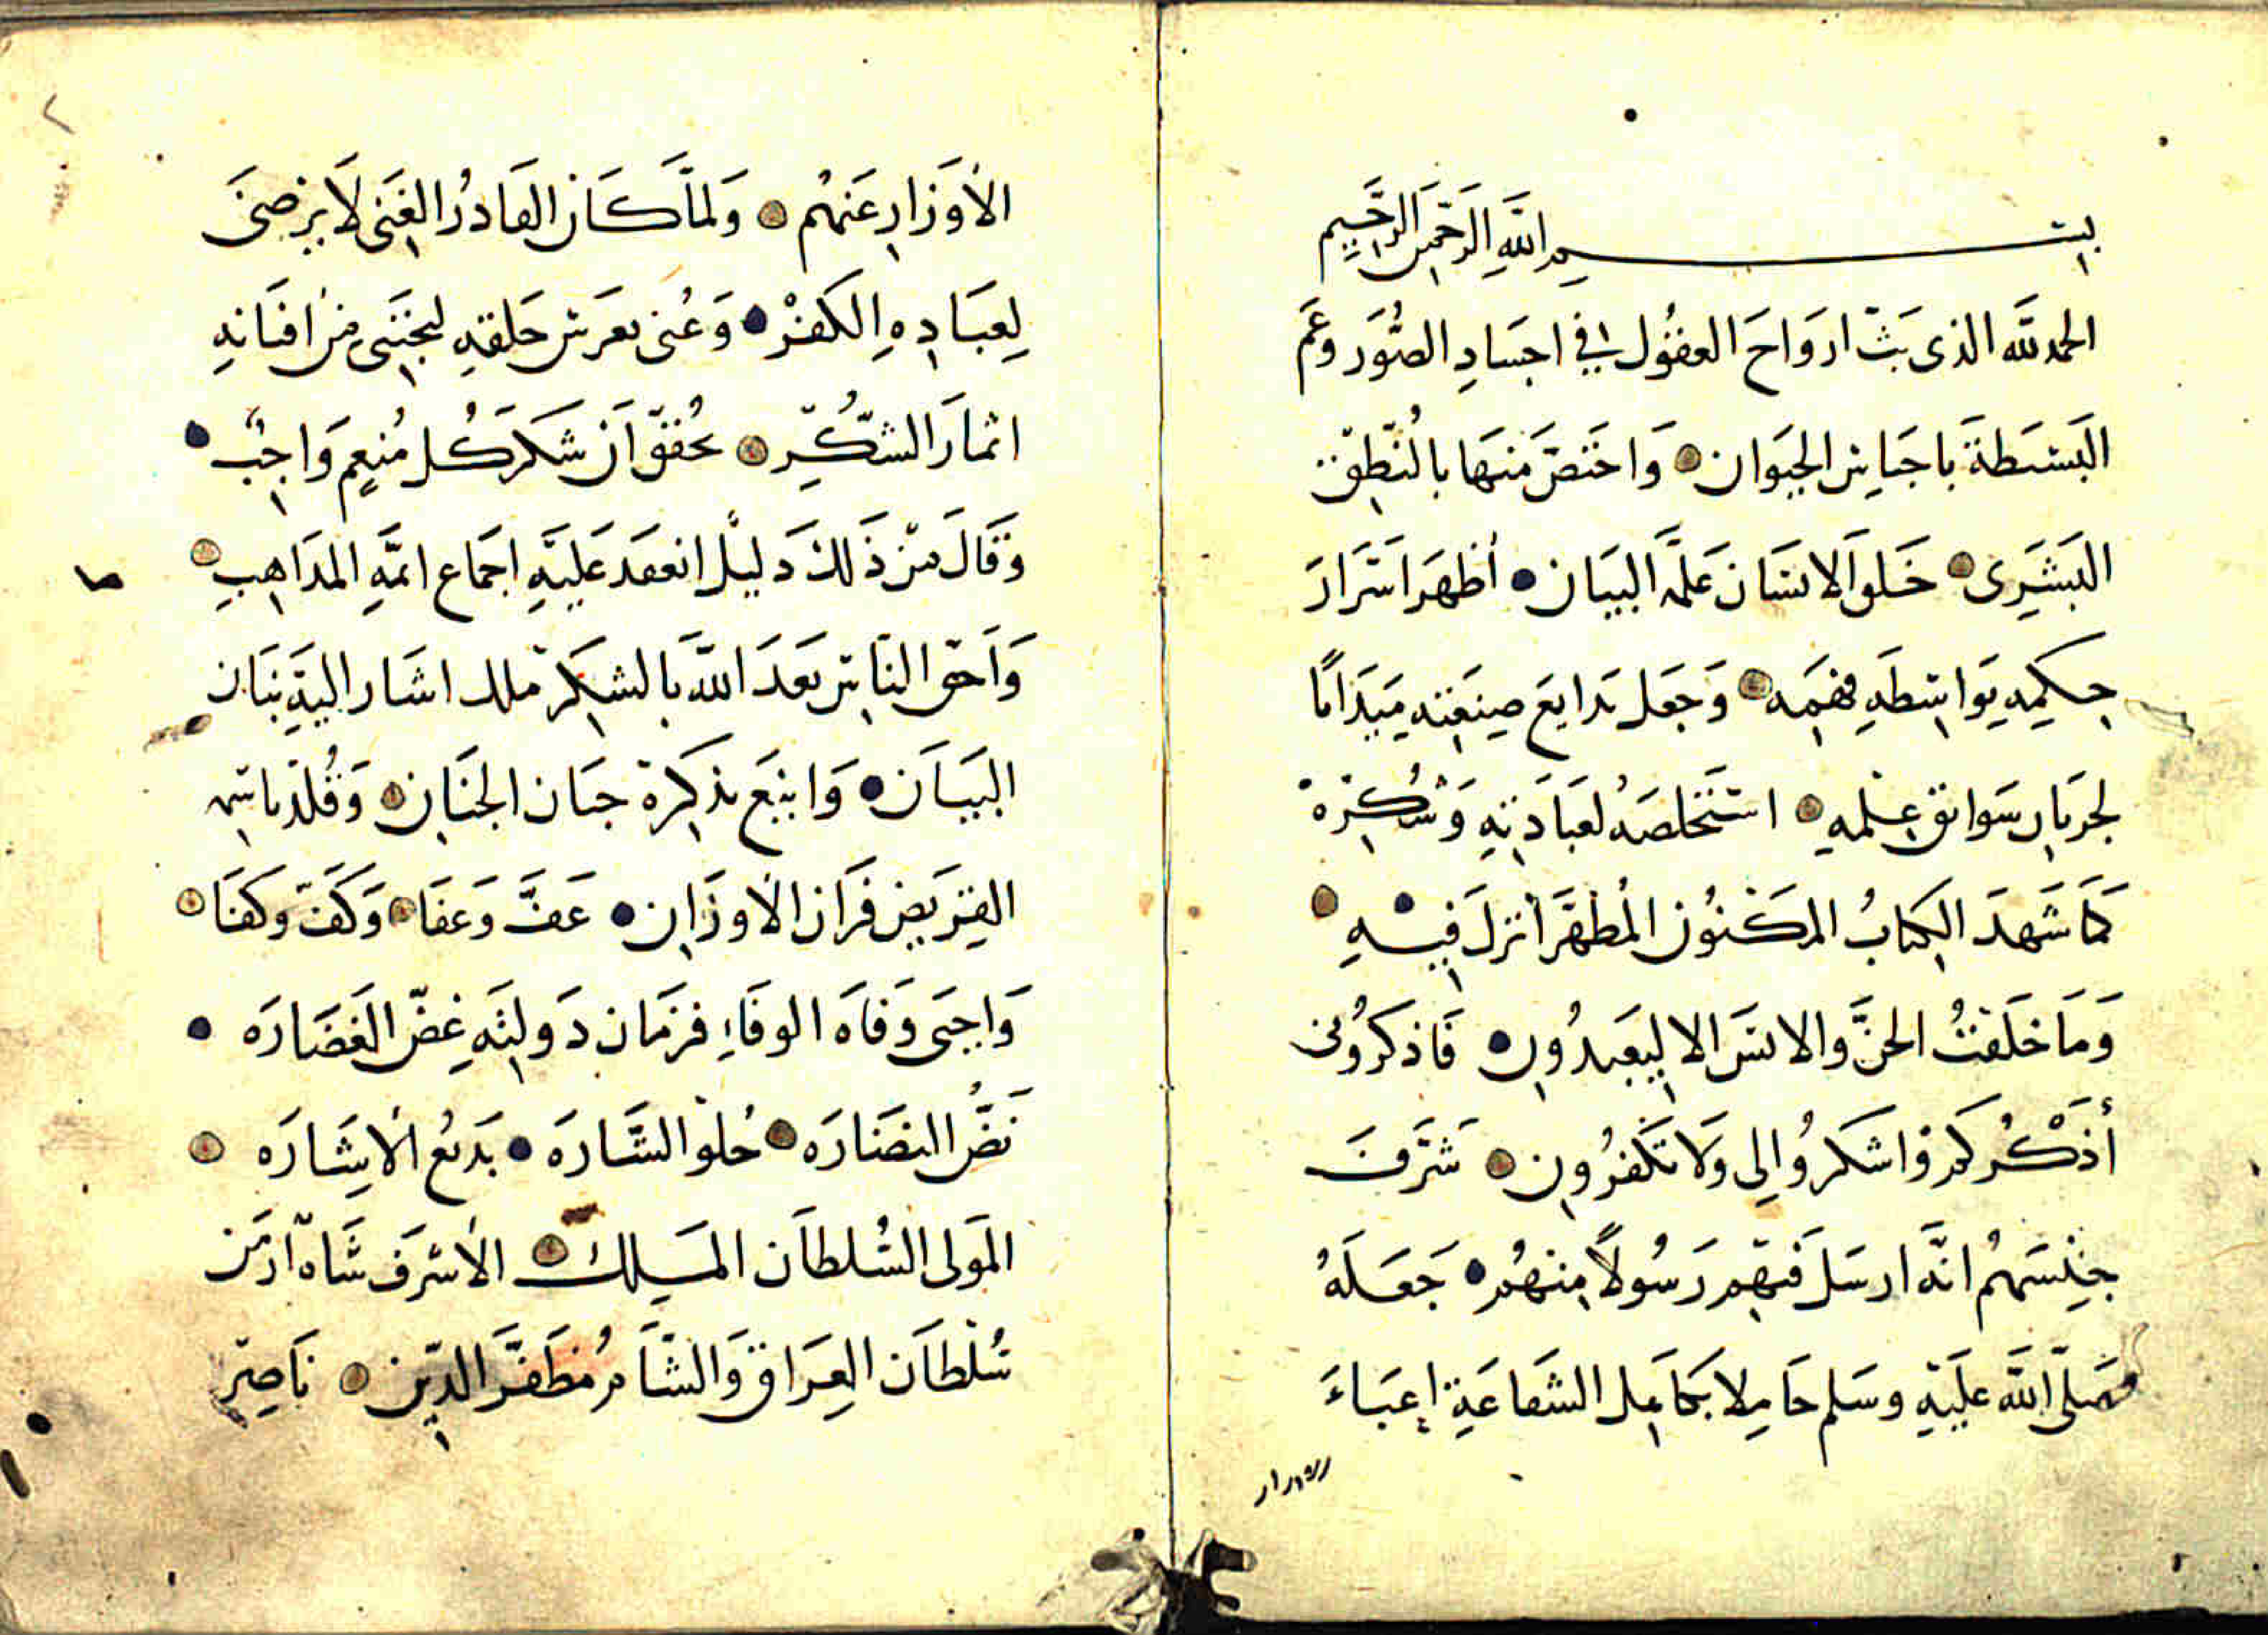 بسم الله الرحمن الرحيم
الحمد لله الذى بَثّ اروَاحَ العقُول فى اجسَادِ الصُّوَر وعَم
البَسْطَةَ باجنَاسِ الحيَوان وَاختَصَّ منهَا بالنُّطقِ
البَشَرِى خَلقَ الانسَانَ عَلَّمَه البيَان أظهَرَ اسْرَارَ
حِكمِهِ بِوَاسِطَهِ فهمِه وَجعَل بَدايعَ صِنعَتِهِ مَيدَانًا
لجرَيانِ سَوابق عِلمهِ استَخلصَهُ لعبَادَتِهِ وَشُكرِهْ
كمَا شَهدَ الكِتابُ المكنُون المُطهَّر أنزلَ فِيهِ
وَمَا خلَقتُ الجنَّ والانسَ الا ليَعبدُونِ فَاذكرُونى
أذْكُركم وَاشكرُوا لِى وَلَا تَكفُرُونِ شَرَّفَ
جِنسَهُم انَّه ارسَلَ فيهِم رَسُولاً مِنهُم جَعَلَهُ
صَلّى اللَّه علَيهِ وسَلم حَامِلا بكَاهِل الشفَاعَةِ اعبَاءَ
الاوزار
الأوزَارِ عَنهُم وَلمَّا كَانَ القَادرُ الغَنِى لَا يَرضَى
لِعبَادِهِ الكُفرْ وَعُنى بغَرسِ خَلقهِ ليجتَنى مِنْ افنَانهِ
اثمَارَ الشُّكر تحُقِّق أنَ شكرَ كُل مُنعِم وَاجِبٌ
وَقَالَ مِنْ ذَلكَ دَليلٌ انعقدَ عَليَهِ اجمَاع ايمَّهِ المذَاهِب
وَاَحَق النَاسِ بَعدَ اللَّه بالشكرِ ملك اشَار اليَهِ بنَان
البيَان وَاينَع بذكرِهْ جنَان الجنَانِ وَقُلّد باسمه
القِريَض فرَان الأوزَانِ عَفَّ وَعفَا وَكَفّ وكفَا
وَاحيَى وَفاه الوفَاءِ فزمَان دَولتِه غضّ الغَضَارَه
نَضُّ النضَارَه حُلو الشَارَه بَديعُ الأشَارَه
المَولى السُّلطَان الملِك الأشرَف شَاه آرمَن
سُلطَان العِرَاق وَالشَّام مُظَفَّر الدِّين نَاصِر